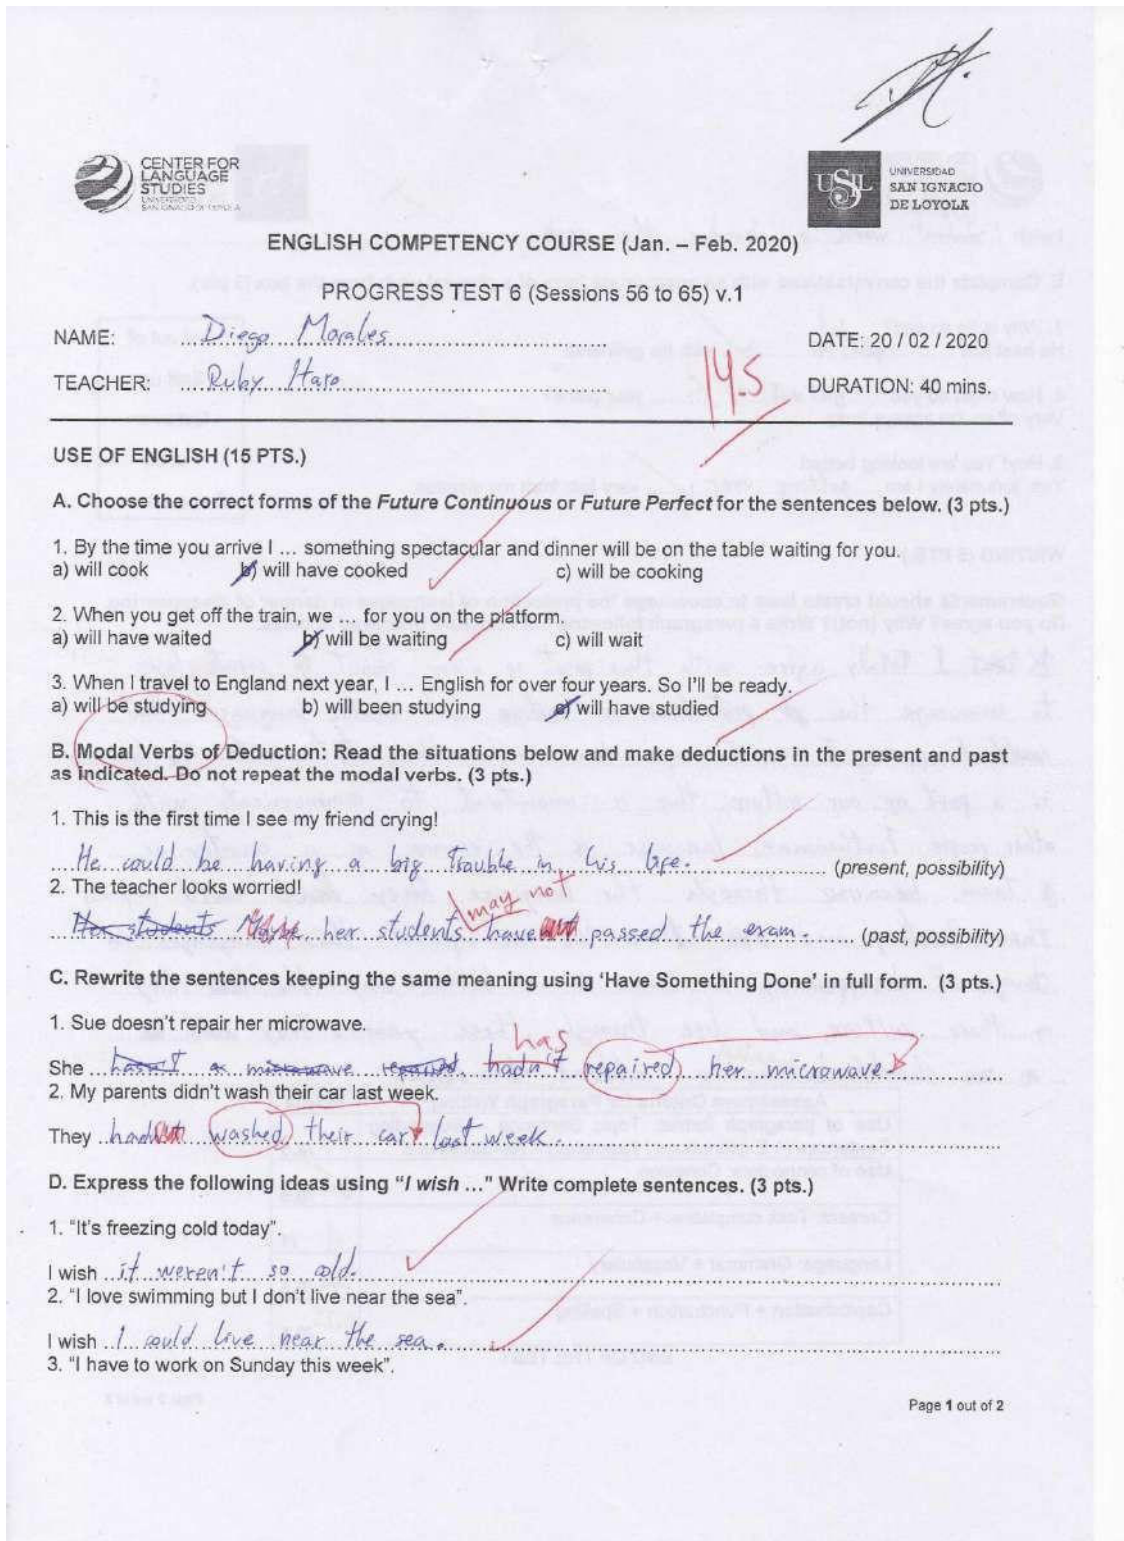 CENTER FOR
LANGUAGE
STUDIES
UNIVERSIDAD
SAN IGNACIO DE LOYOLA
USIL
UNIVERSIDAD
SAN IGNACIO
DE LOYOLA
ENGLISH COMPETENCY COURSE (Jan. – Feb. 2020)
PROGRESS TEST 6 (Sessions 56 to 65) v.1
NAME: Diego Morales
DATE: 20 / 02 / 2020
TEACHER: Ruby Haro
14.5
DURATION: 40 mins.
USE OF ENGLISH (15 PTS.)
A. Choose the correct forms of the Future Continuous or Future Perfect for the sentences below. (3 pts.)
1. By the time you arrive I ... something spectacular and dinner will be on the table waiting for you.
a) will cook b) will have cooked c) will be cooking
2. When you get off the train, we ... for you on the platform.
a) will have waited b) will be waiting c) will wait
3. When I travel to England next year, I ... English for over four years. So I'll be ready.
a) will be studying b) will been studying c) will have studied
B. Modal Verbs of Deduction: Read the situations below and make deductions in the present and past
as indicated. Do not repeat the modal verbs. (3 pts.)
1. This is the first time I see my friend crying!
He could be having a big trouble in his life. (present, possibility)
2. The teacher looks worried!
may not
Her students Maybe her students have passed the exam. (past, possibility)
C. Rewrite the sentences keeping the same meaning using 'Have Something Done' in full form. (3 pts.)
1. Sue doesn't repair her microwave.
has
She hasn't a microwave repaired hadn't repaired her microwave
2. My parents didn't wash their car last week.
They had washed their car last week.
D. Express the following ideas using "I wish ..." Write complete sentences. (3 pts.)
1. "It's freezing cold today".
I wish it weren't so cold.
2. "I love swimming but I don't live near the sea".
I wish I could live near the sea.
3. "I have to work on Sunday this week".
Page 1 out of 2